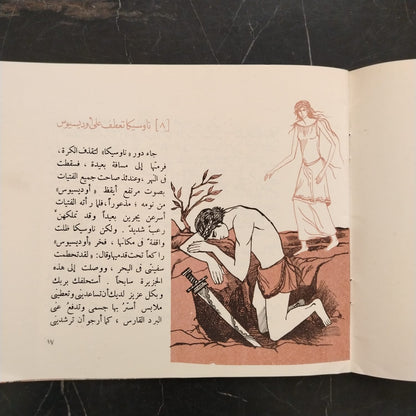 [٨] ناوسيكا تعطف على أوديسيوس
جاء دور «ناوسيكا» لتقذف الكرة ،
فرمتها إلى مسافة بعيدة ، فسقطت
في النهر ، عندئذ صاحت جميع الفتيات
بصوت مرتفع أيقظ « أوديسيوس»
من نومه ؛ مذعوراً ، فلما رأته الفتيات
أسرعن يجرين بعيداً وقد تملكهن
رعب شديد . ولكن ناوسيكا ظلت
واقفة في مكانها ، فخر «أوديسيوس»
راكعاً تحت قدميها وقال : «لقد تحطمت
سفينتي في البحر ، ووصلت إلى هذه
الجزيرة سابحاً . أستحلفك بربك
وبكل عزيز لديك أن تساعديني وتعطيني
ملابس أستر بها جسمي وتدفع عني
البرد القارس ، كما أرجو أن ترشديني
١٧